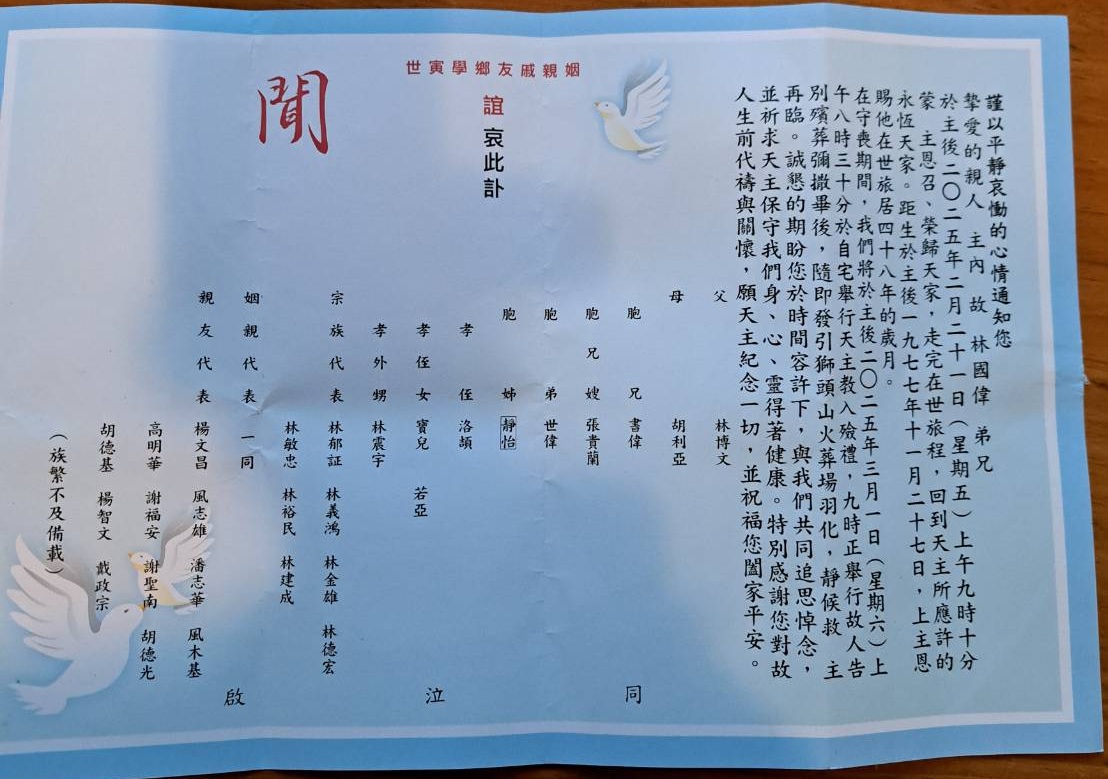 謹以平靜哀慟的心情通知您
摯愛的親人 主內 故 林國偉 弟兄
於主後二〇二五年二月二十一日(星期五)上午九時十分
蒙 主恩召、榮歸天家,走完在世旅程,回到天主所應許的
永恆天家。距生於主後一九七七年十一月二十七日,上主恩
賜他在世旅居四十八年的歲月。
在守喪期間,我們將於主後二〇二五年三月一日(星期六)上
午八時三十分於自宅舉行天主教入殮禮,九時正舉行故人告
別殯葬彌撒畢後,隨即發引獅頭山火葬場羽化,靜候救 主
再臨。誠懇的期盼您於時間容許下,與我們共同追思悼念,
並祈求天主保守我們身、心、靈得著健康。特別感謝您對故
人生前代禱與關懷,願天主紀念一切,並祝福您闔家平安。
父 林博文
母 胡利亞
胞兄 書偉
胞兄嫂 張貴蘭
胞弟 世偉
胞姊 靜怡
孝侄 洛頡
孝侄女 寶兒 若亞
孝外甥 林震宇
宗族代表 林郁証 林義鴻 林金雄 林德宏
林敏忠 林裕民 林建成
姻親代表 一同
親友代表 楊文昌 風志雄 潘志華 風木基
高明華 謝福安 謝聖南 胡德光
胡德基 楊智文 戴政宗
(族繁不及備載)
同泣啟
姻親戚友鄉學寅世
誼哀此訃
聞